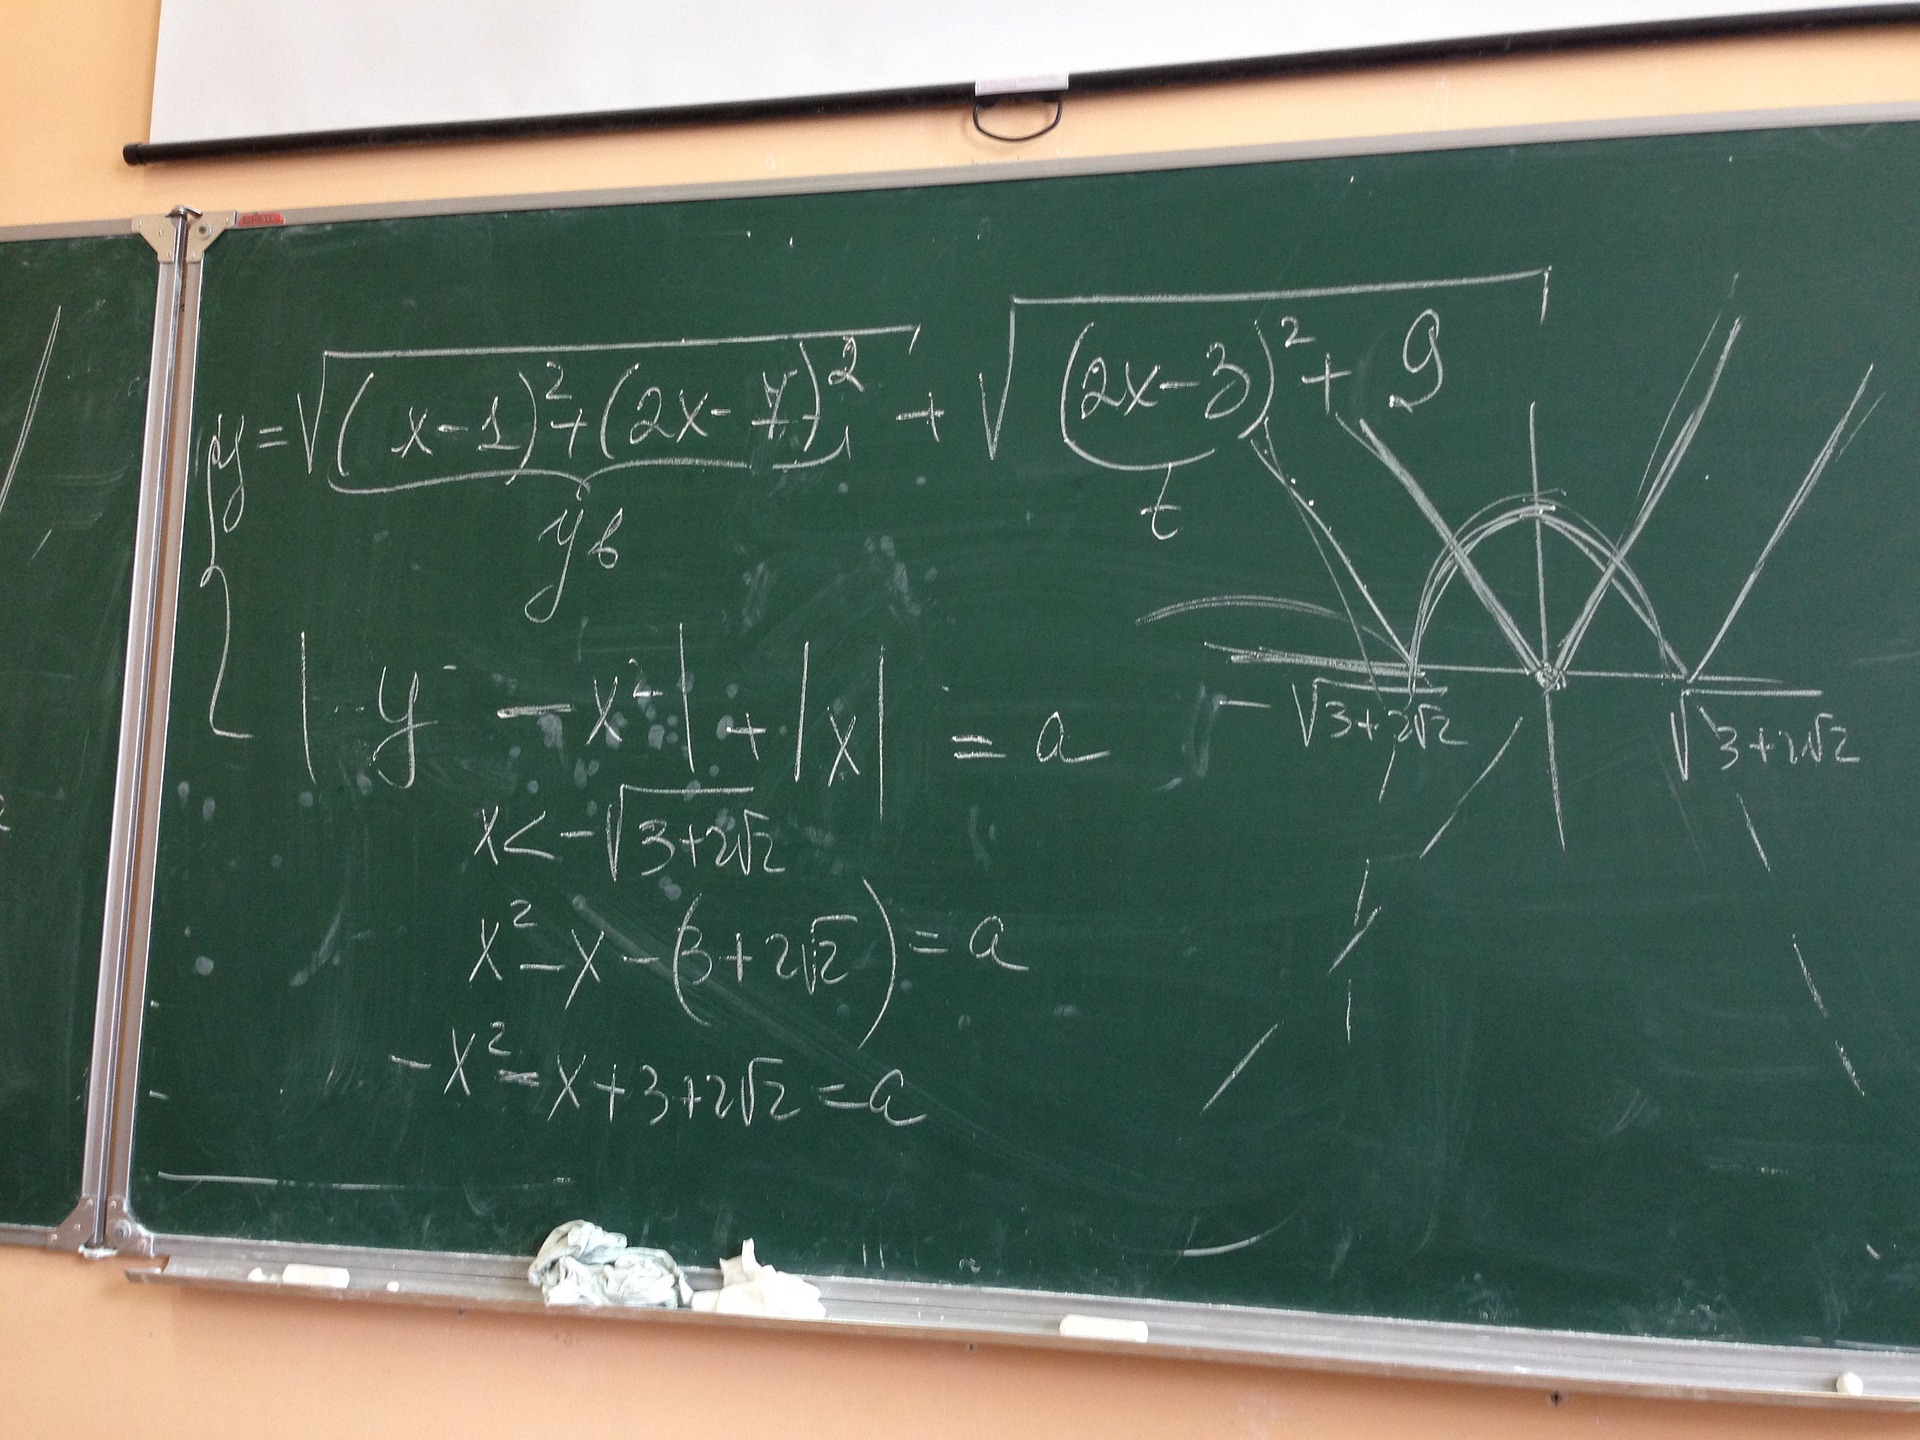 y = √((x-1)²+(2x-7)²) + √((2x-3)²+9)
yв
t
|y - x²| + |x| = a
x < -√(3+2√2)
x² - x - (3+2√2) = a
-x² - x + 3 + 2√2 = a
-√(3+2√2)
√(3+2√2)